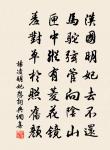 漢國明妃去不還
馬駝弦管向陰山
匣中縱有菱花鏡
羞對單于照舊顏
楊凌明妃怨